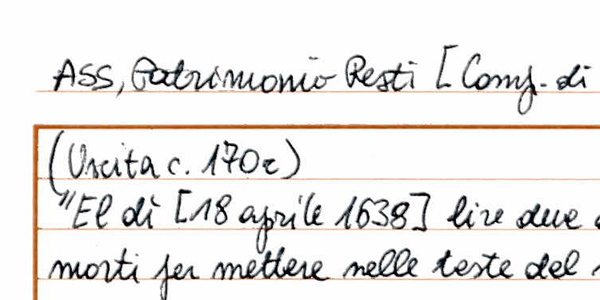 ASS, Patrimonio Resti [Comp. di
(Uscita c. 170r)
"El dì [18 aprile 1638] lire due
morti per mettere nelle teste del